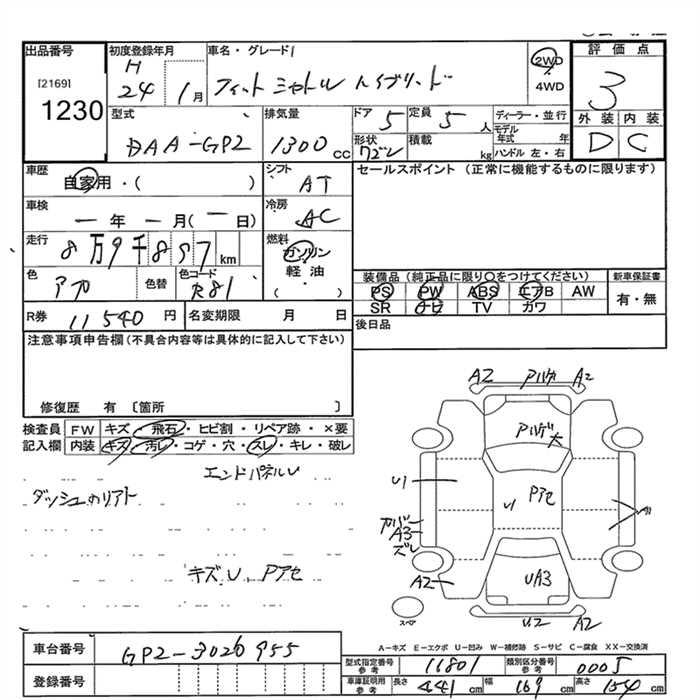 出品番号 初度登録年月 車名・グレード 評価点
H
[2169]
1230
24 1月 フィットシャトルハイブリッド 2WD
4WD
3
型式 排気量 ドア 5 定員 5 人 ディーラー・並行
モデル年式 年
外装 内装
DAA-GP2 1300 cc 形状 積載 kg ハンドル 左・右 D C
車歴 自家用・( ) シフト AT セールスポイント(正常に機能するものに限ります)
車検 ー年 ー月(ー日) 冷房 AC
走行 8万9千897km 燃料 ガソリン
軽油・
( )
色 アカ 色替 色コード R81 装備品(純正品に限り○をつけてください) 新車保証書
PS PW ABS エアB AW 有・無
SR ナビ TV カワ
R券 11540円 名変期限 月 日 後日品
注意事項申告欄(不具合内容等は具体的に記入して下さい)
修復歴 有〔箇所 〕
検査員 FW キズ・飛石・ヒビ割・リペア跡・×要
記入欄 内装 キズ・汚レ・コゲ・穴・スレ・キレ・破レ
エンドパネルU
ダッシュカリアト
キズU、Pアセ
A2 Pハゲ A2
Pハゲ大
U1
U1 Pアセ
カバー
A3
ズレ
A2 UA3
U2 A2
スペア
A-キズ E-エクボ U-凹み W-補修跡 S-サビ C-腐食 XX-交換済
車台番号 GP2-3026955
登録番号
型式指定番号 参考 11801 類別区分番号 参考 0005
車庫証明用 参考 長さ 441cm 幅 169cm 高さ 154cm